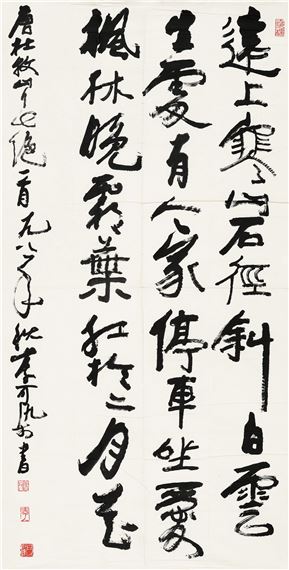 遠上寒山石徑斜白雲
生處有人家停車坐愛
楓林晚霜葉紅於二月花
唐杜牧山行七絕一首一九八年秋李可書